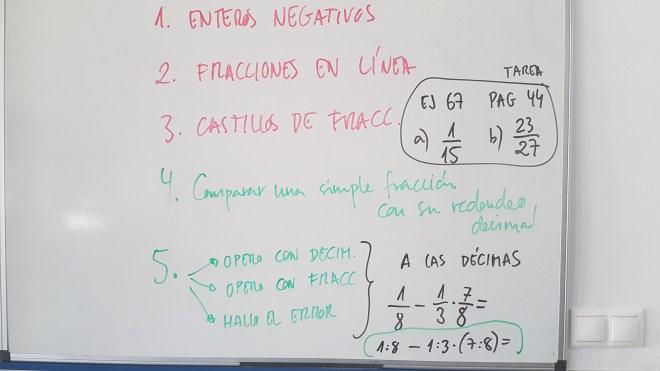 1. ENTEROS NEGATIVOS
2. FRACCIONES EN LÍNEA
3. CASTILLOS DE FRACC.
TAREA
EJ 67 PAG 44
a) 1/15 b) 23/27
4. Comparar una simple fracción
con su redondeo
decimal
5.
OPERO CON DECIM.
OPERO CON FRACC
HALLO EL ERROR
A LAS DÉCIMAS
1/8 - 1/3 · 7/8 =
1:8 - 1:3·(7:8)=